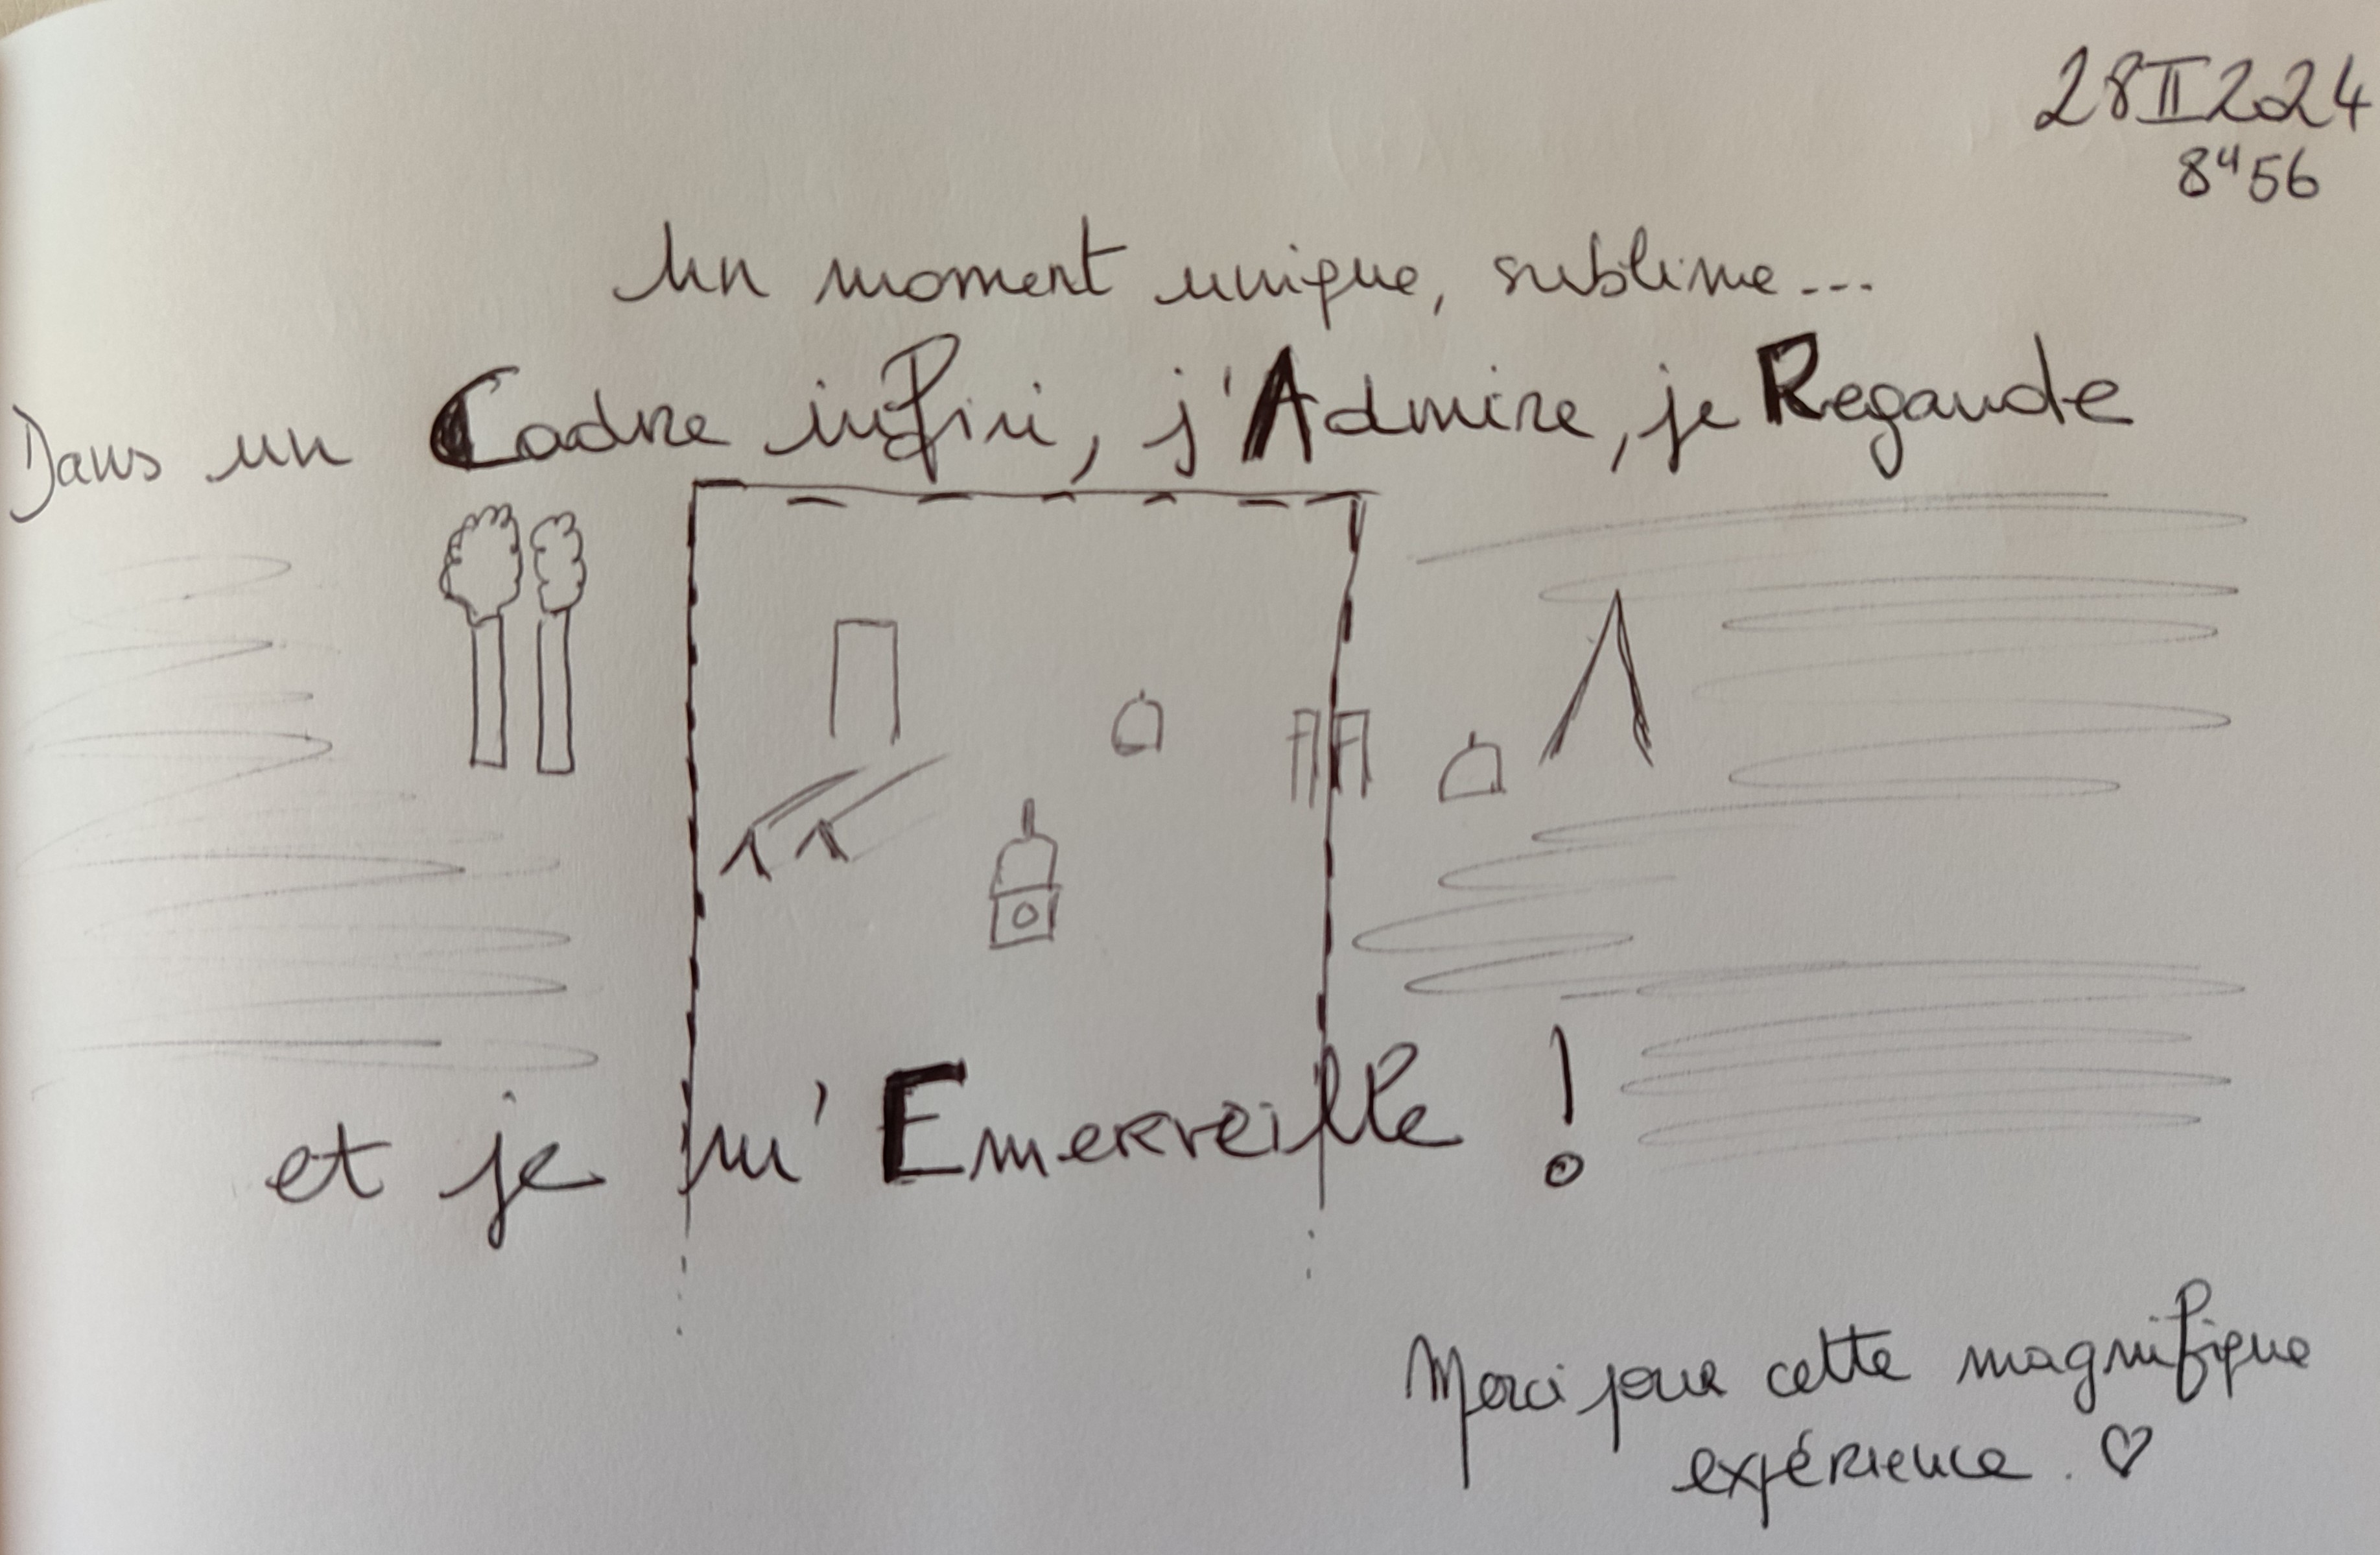 28II224
8H56
Un moment unique, sublime...
Dans un Cadre infini, j'Admire, je Regarde
et je m'Emerveille !
Merci pour cette magnifique
expérience. ♡